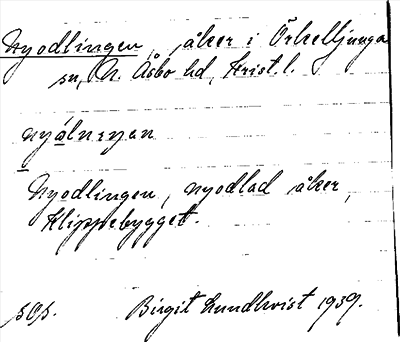 Nyodlingen, åker i Örkelljunga
sn, N. Åsbo hd, Krist. l.
nyálnɩŋan
Nyodlingen, nyodlad åker,
Klippebygget.
Birgit Lundkvist 1939.